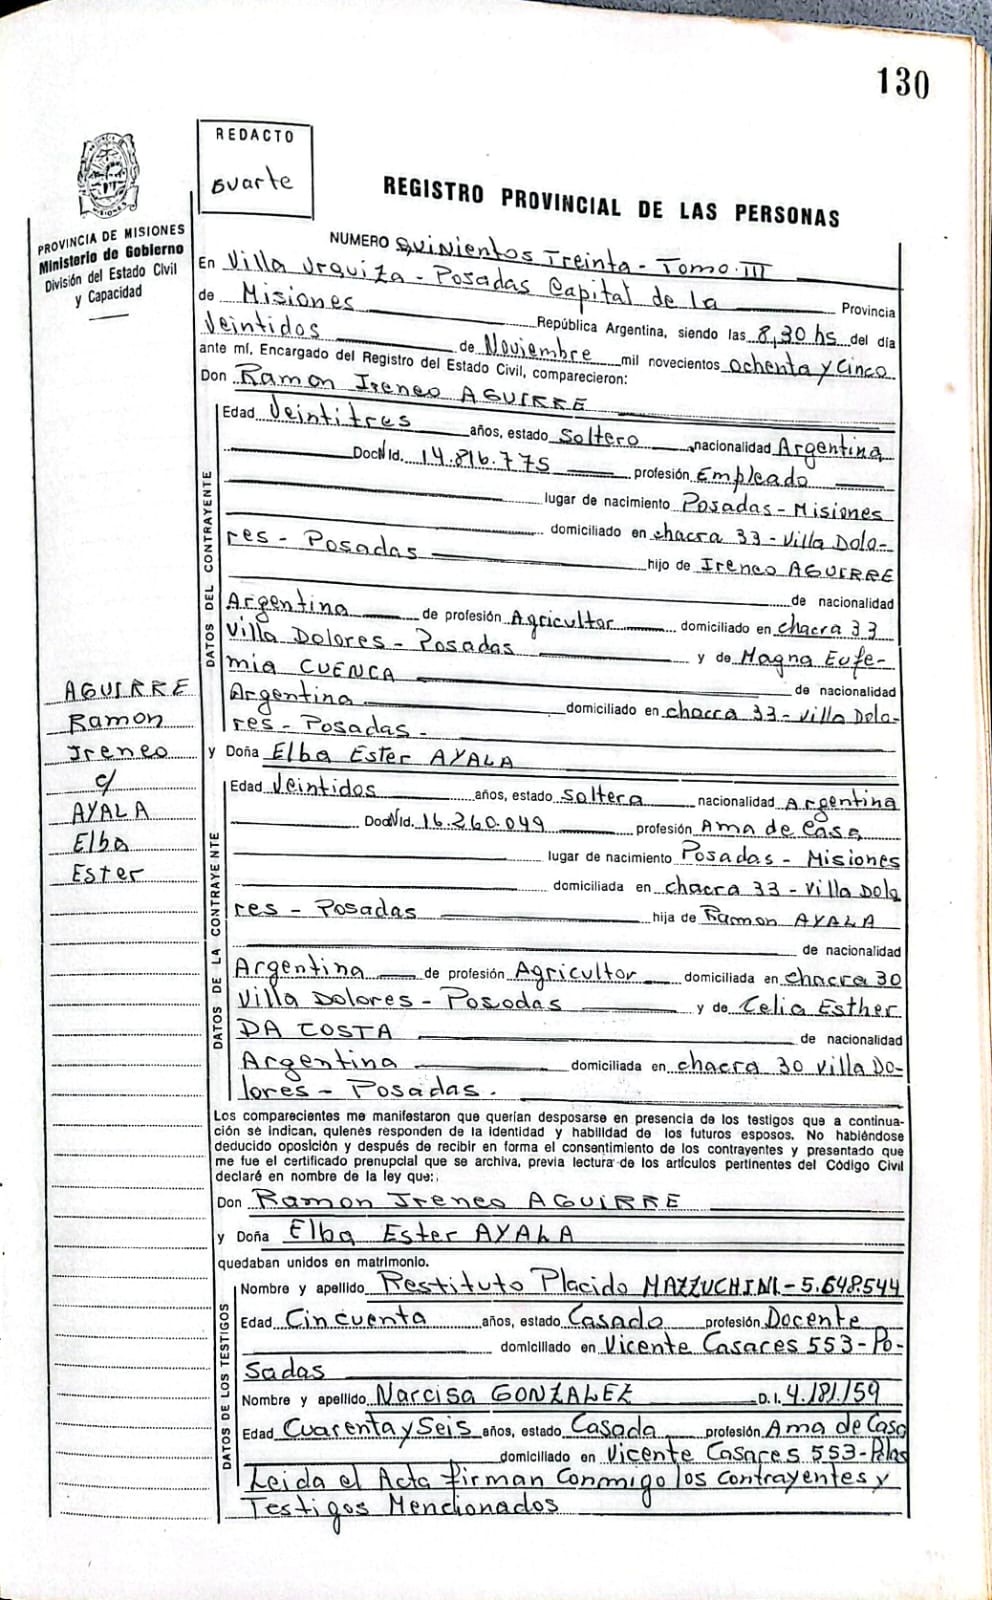 130
REDACTO
Duarte
REGISTRO PROVINCIAL DE LAS PERSONAS
PROVINCIA DE MISIONES
Ministerio de Gobierno
División del Estado Civil
y Capacidad
NUMERO Quinientos Treinta - Tomo III
En Villa Urquiza - Posadas Capital de la Provincia
de Misiones República Argentina, siendo las 8,30 hs del día
Veintidos de Noviembre mil novecientos ochenta y cinco
ante mí, Encargado del Registro del Estado Civil, comparecieron:
Don Ramon Ireneo AGUIRRE
DATOS DEL CONTRAYENTE
Edad Veintitres años, estado Soltero nacionalidad Argentina
Doc N Id. 14.816.775 profesión Empleado
lugar de nacimiento Posadas - Misiones
domiciliado en chacra 33 - Villa Dolo-
res - Posadas hijo de Ireneo AGUIRRE
de nacionalidad
Argentina de profesión Agricultor domiciliado en chacra 33
Villa Dolores - Posadas y de Magna Eufe-
mia CUENCA de nacionalidad
Argentina domiciliado en chacra 33 - Villa Dolo-
res - Posadas -
y Doña Elba Ester AYALA
AGUIRRE
Ramon
Ireneo
c/
AYALA
Elba
Ester
DATOS DE LA CONTRAYENTE
Edad Veintidos años, estado Soltera nacionalidad Argentina
Doc N Id. 16.260.049 profesión Ama de Casa
lugar de nacimiento Posadas - Misiones
domiciliada en chacra 33 - Villa Dolo
res - Posadas hija de Ramon AYALA
de nacionalidad
Argentina de profesión Agricultor domiciliada en chacra 30
Villa Dolores - Posadas y de Celia Esther
DA COSTA de nacionalidad
Argentina domiciliada en chacra 30 Villa Do-
lores - Posadas.
Los comparecientes me manifestaron que querían desposarse en presencia de los testigos que a continua-
ción se indican, quienes responden de la identidad y habilidad de los futuros esposos. No habiéndose
deducido oposición y después de recibir en forma el consentimiento de los contrayentes y presentado que
me fue el certificado prenupcial que se archiva, previa lectura de los artículos pertinentes del Código Civil
declaré en nombre de la ley que:
Don Ramon Ireneo AGUIRRE
y Doña Elba Ester AYALA
quedaban unidos en matrimonio.
DATOS DE LOS TESTIGOS
Nombre y apellido Restituto Placido MAZZUCHINI - 5.648.544
Edad Cincuenta años, estado Casado profesión Docente
domiciliado en Vicente Casares 553 - Po-
sadas
Nombre y apellido Narcisa GONZALEZ D.I. 4.181.159
Edad Cuarenta y Seis años, estado Casada profesión Ama de Casa
domiciliado en Vicente Casares 553 - Pdas
Leida el Acta firman conmigo los contrayentes y
Testigos Mencionados